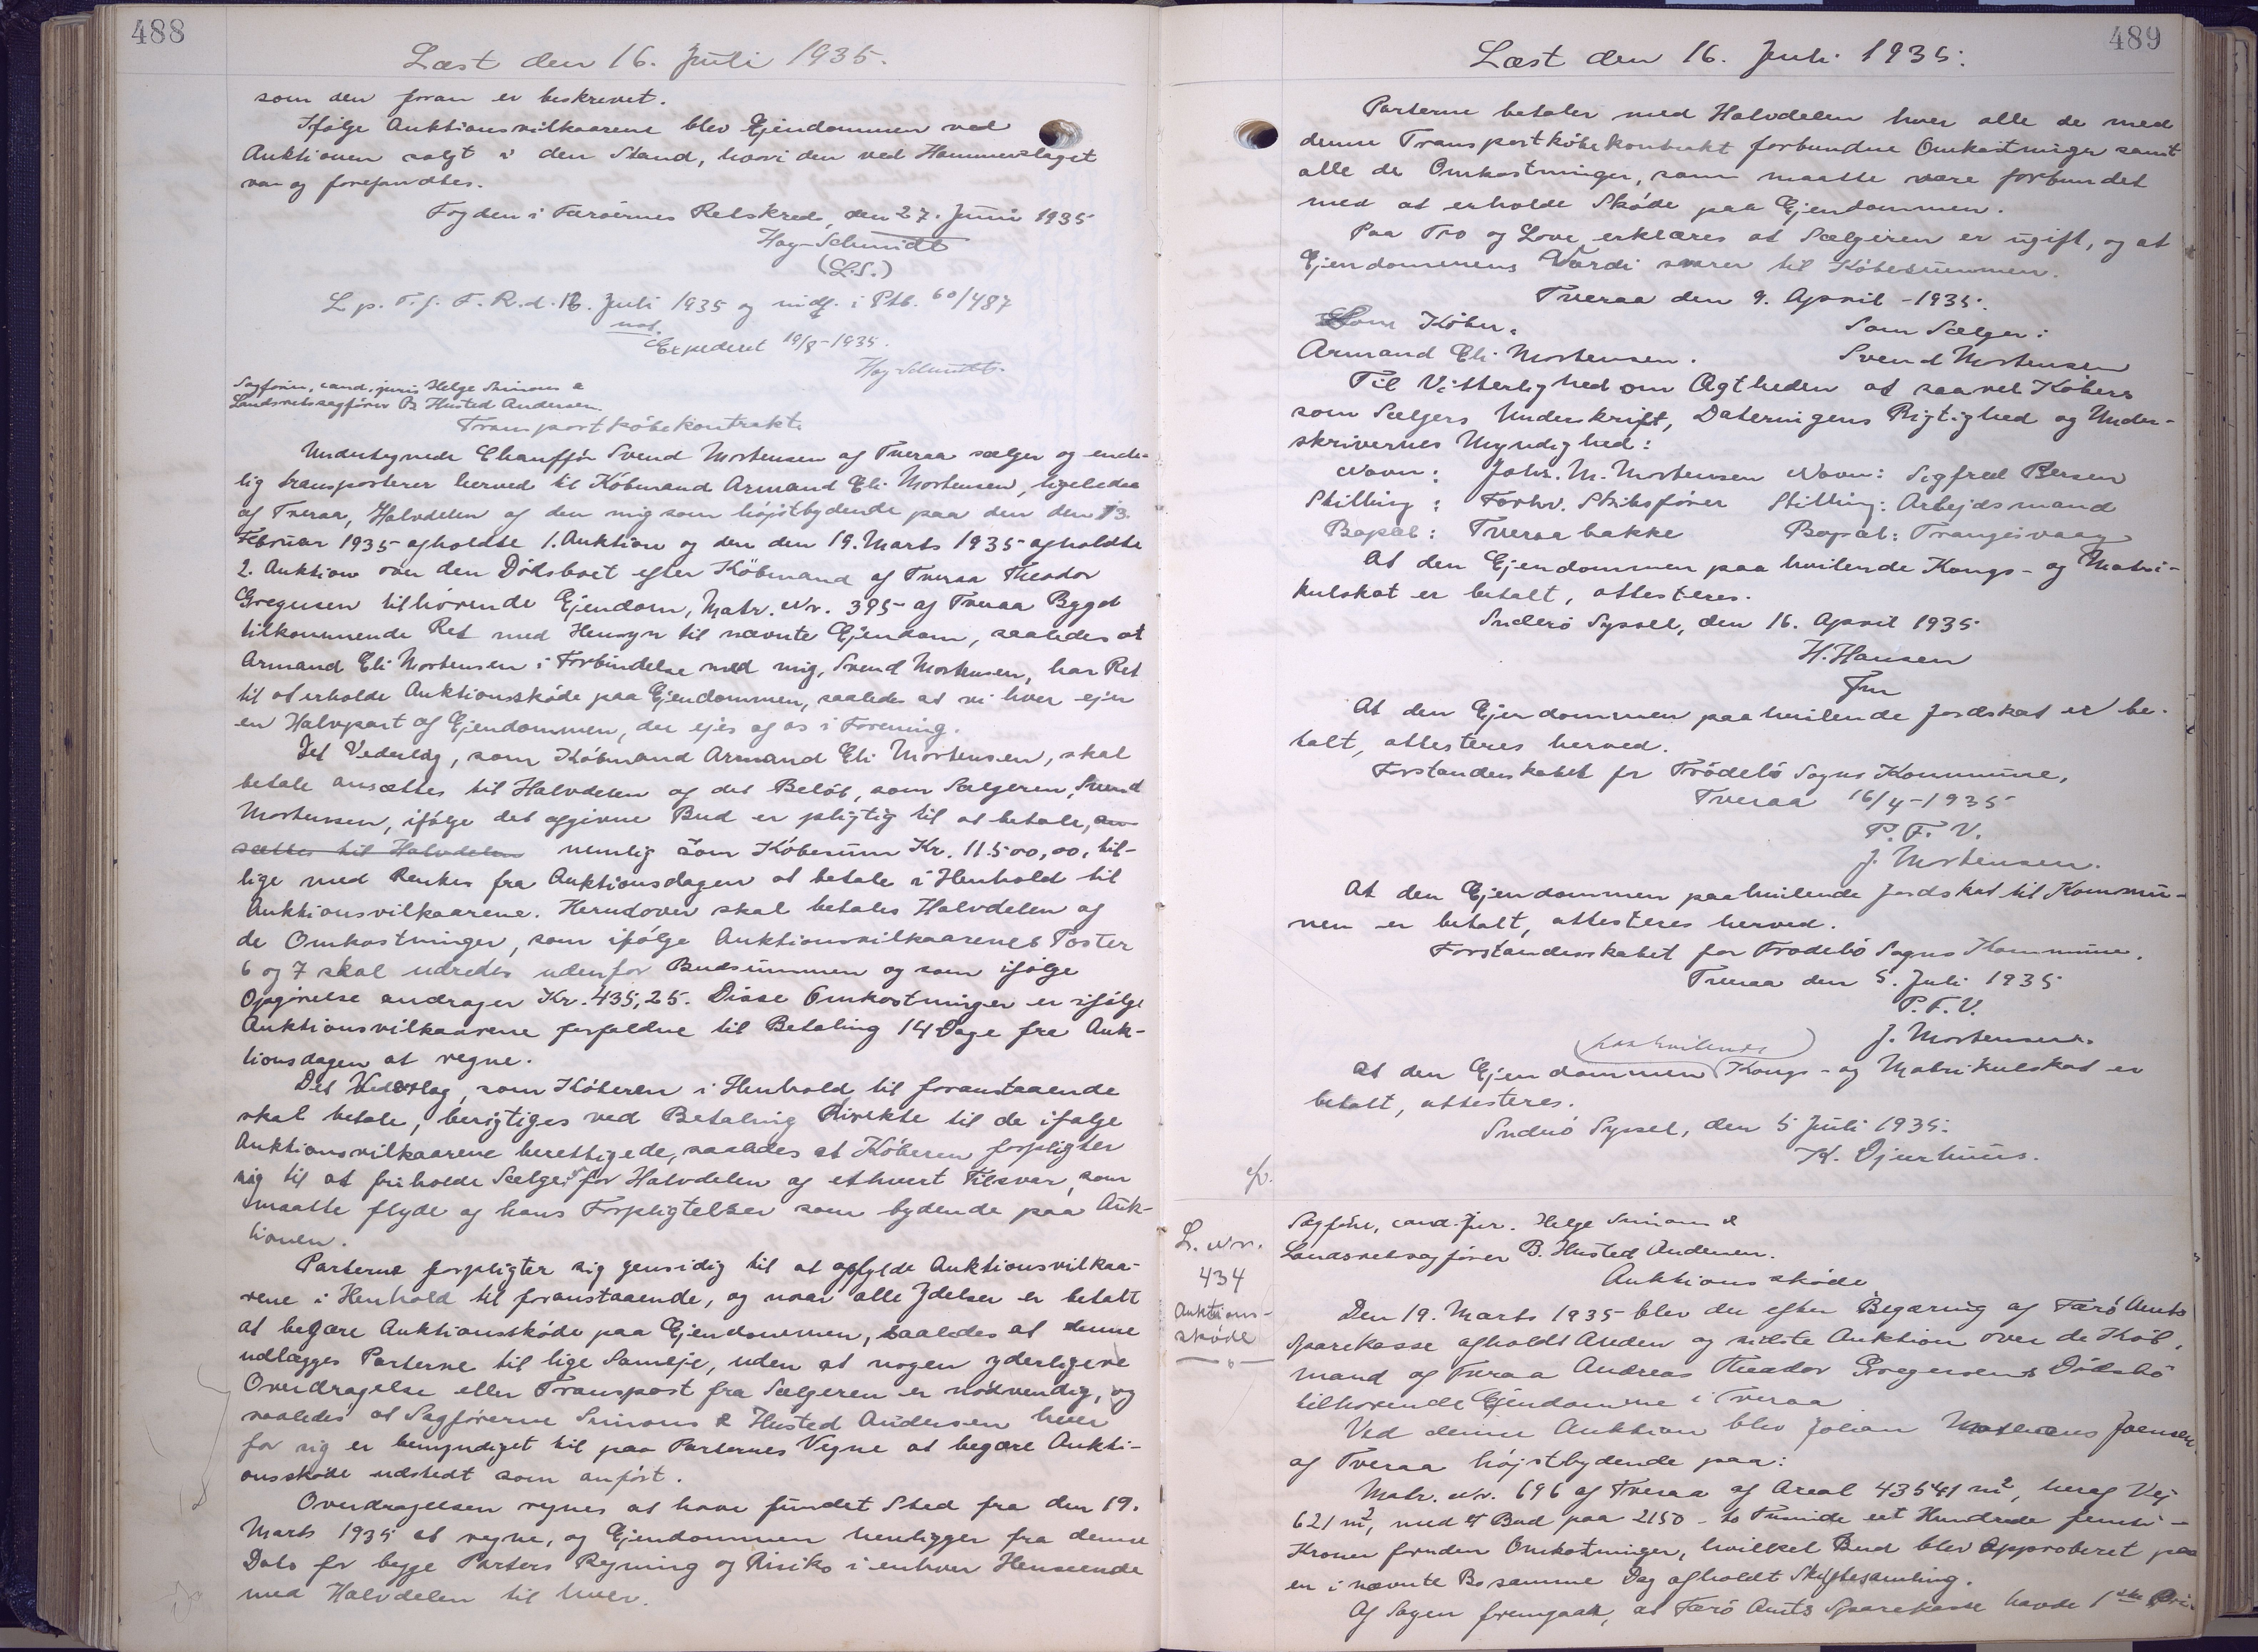 488
Læst den 16. Juli 1935.
som den foran er beskrevet.
Ifølge Auktionsvilkaarene blev Ejendommen ved
Auktionen solgt i den Stand, hvori den ved Hammerslaget
var og forefandtes.
Fogden i Færøernes Retskreds, den 27. Juni 1935
Hay-Schmidt
(L.S.)
L. p. T. f. F. R. d. 16. Juli 1935 og indf. i Ptb. 60/487
not.
Expederet 19/8-1935.
Hay-Schmidt.
Sagfører, cand. juris Helge Simons &
Landsretssagfører B. Husted Andersen.
Transportkøbekontrakt.
Undertegnede Chauffør Svend Mortensen af Tveraa sælger og ende-
lig transporterer herved til Købmand Armand Eli Mortensen, ligeledes
af Tveraa, Halvdelen af den mig som højstbydende paa den den 13.
Februar 1935 afholdte 1. Auktion og den den 19. Marts 1935 afholdte
2. Auktion over den Dødsboet efter Købmand af Tveraa Theodor
Gregersen tilhørende Ejendom, Matr. Nr. 395 af Tveraa Bygd
tilkommende Ret med Hensyn til nævnte Ejendom, saaledes at
Armand Eli Mortensen i Forbindelse med mig, Svend Mortensen, har Ret
til at erholde Auktionsskøde paa Ejendommen, saaledes at vi hver ejer
en Halvpart af Ejendommen, der ejes af os i Forening.
Det Vederlag, som Købmand Armand Eli Mortensen, skal
betale ansættes til Halvdelen af det Beløb, som Sælgeren, Svend
Mortensen, ifølge det afgivne Bud er pligtig til at betale, an-
sættes til Halvdelen nemlig som Købesum Kr. 11.500,00, til-
lige med Renter fra Auktionsdagen at betale i Henhold til
Auktionsvilkaarene. Herudover skal betales Halvdelen af
de Omkostninger, som ifølge Auktionsvilkaarenes Poster
6 og 7 skal udredes udenfor Budsummen og som ifølge
Opgørelse andrager Kr. 435,25. Disse Omkostninger er ifølge
Auktionsvilkaarene forfaldne til Betaling 14 Dage fra Auk-
tionsdagen at regne.
Det Vederlag, som Køberen i Henhold til foranstaaende
skal betale, berigtiges ved Betaling direkte til de ifølge
Auktionsvilkaarene berettigede, saaledes at Køberen forpligter
sig til at friholde Sælger for Halvdelen af ethvert Tilsvar, som
maatte flyde af hans Forpligtelser som bydende paa Auk-
tionen.
Parterne forpligter sig gensidig til at opfylde Auktionsvilkaa-
rene i Henhold til foranstaaende, og naar alle Ydelser er betalt
at begære Auktionsskøde paa Ejendommen, saaledes at denne
udlægges Parterne til lige Sameje, uden at nogen yderligere
Overdragelse eller Transport fra Sælgeren er nødvendig, og
saaledes at Sagførerne Simons & Husted Andersen hver
for sig er bemyndiget til paa Parternes Vegne at begære Aukti-
onsskøde udstedt som anført.
Overdragelsen regnes at have fundet Sted fra den 19.
Marts 1935 at regne, og Ejendommen henligger fra denne
Dato for begge Parters Regning og Risiko i enhver Henseende
med Halvdelen til hver.
489
Læst den 16. Juli 1935.
Parterne betaler med Halvdelen hver alle de med
denne Transportkøbekontrakt forbundne Omkostninger samt
alle de Omkostninger, som maatte være forbundet
med at erholde Skøde paa Ejendommen.
Paa Tro og Love erklæres at Sælgeren er ugift, og at
Ejendommens Værdi svarer til Købesummen.
Tveraa den 9. April -1935.
Som Køber: Som Sælger:
Armand Eli Mortensen. Svend Mortensen
Til Vitterlighed om Ægtheden af saavel Købers
som Sælgers Underskrift, Dateringens Rigtighed og Under-
skrivernes Myndighed:
Navn: Johs. M. Mortensen Navn: Sigfred Bersen
Stilling: Forhv. Skibsfører Stilling: Arbejdsmand
Bopæl: Tveraa bakke Bopæl: Trangisvaag
At den Ejendommen paa hvilende Kongs- og Matri-
kulskat er betalt, attesteres.
Suderø Syssel, den 16. April 1935
H. Hansen
fm
At den Ejendommen paahvilende Jordskat er be-
talt, attesteres herved.
Forstanderskabet for Frodebø Sogns Kommune,
Tveraa 16/4-1935
P. F. V.
J. Mortensen.
At den Ejendommen paahvilende Jordskat til Kommu-
nen er betalt, attesteres herved.
Forstanderskabet for Frodebø Sogns Kommune.
Tveraa den 5. Juli 1935
P. F. V.
J. Mortensen.
paahvilende
At den Ejendommen Kongs- og Matrikulskat er
betalt, attesteres.
Suderø Syssel, den 5 Juli 1935.
K. Djurhuus.
L. Nr.
434
Auktions-
skøde
Sagfører, cand. jur. Helge Simons &
Landsretssagfører B. Husted Andersen.
Auktionsskøde
Den 19. Marts 1935 blev der efter Begæring af Færø Amts
Sparekasse afholdt Anden og sidste Auktion over de Køb-
mand af Tveraa Andreas Theodor Gregersens Dødsbo
tilhørende Ejendomme i Tveraa
Ved denne Auktion blev Johan Joensen
af Tveraa højstbydende paa:
Matr. Nr. 696 af Tveraa af Areal 43541 m², heraf Vej
621 m², med et Bud paa 2150 - to Tusinde eet Hundrede femti -
Kroner foruden Omkostninger, hvilket Bud blev approberet paa
en i nævnte Bo samme Dag afholdt Skiftesamling.
Af Sagen fremgaar, at Færø Amts Sparekasse havde 1ste Pri-